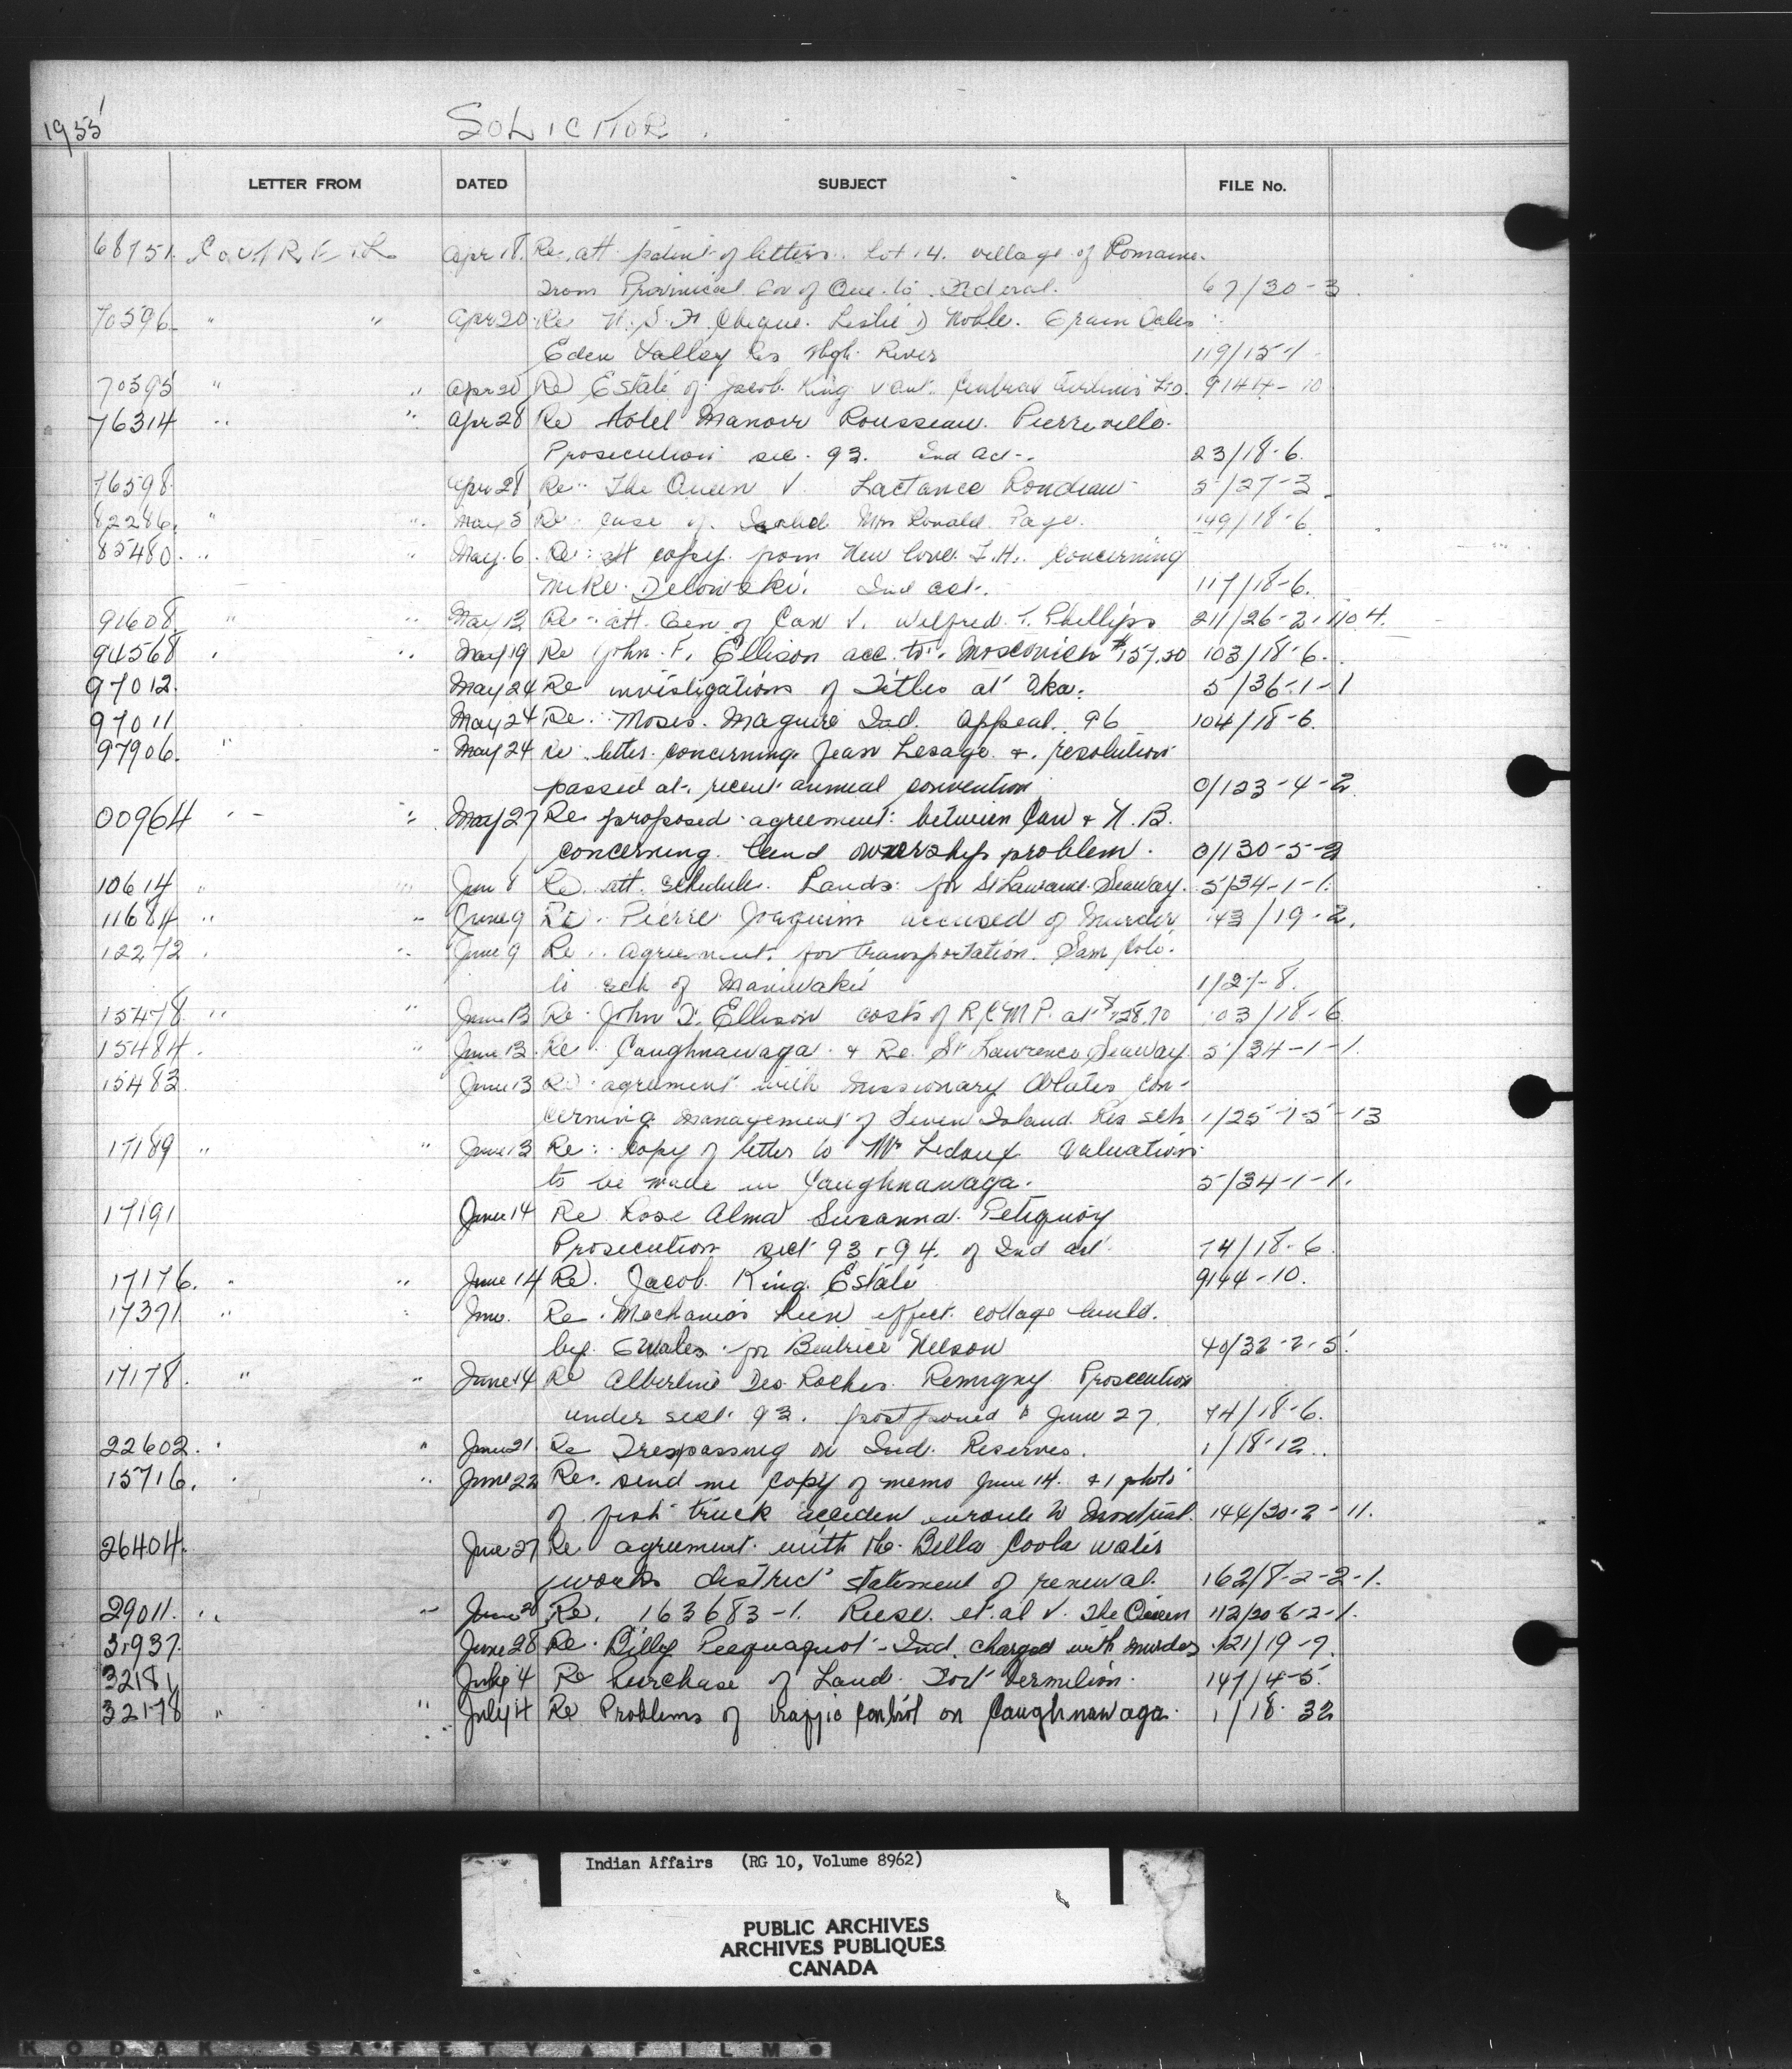 1955
SOLICITOR.
LETTER FROM DATED SUBJECT FILE No.
68751. Apr 18. Re. att. patent of letters. Lot 14. village of Romaine.
From Provincial Gov of Que. to Federal. 67/30-3
70596 " " Apr 20 Re N.S.F. Cheque. Leslie D Noble. Grain Sales
Eden Valley Res High River 119/15-1
70595 " " Apr 20 Re Estate of Jacob King v Central Airlines Ltd. 9144-10
76314 " " Apr 28 Re Hotel Manoir Rousseau. Pierreville.
Prosecution sec. 93. Ind Act. 23/18-6.
76598 Apr 28 Re. The Queen V Lactance Rondeau 5/27-3
82286. " " May 5 Re. case of Mrs Ronald Page. 149/18-6
85480. " " May. 6. Re: att copy from concerning
Mike Ind act. 117/18-6.
91608 " " May 13 Re. att. Gen of Can V. Wilfred T. Phillips 211/26-2-110 4.
94568 " " May 19 Re John. F. Ellison acc. to. $157.50 103/18-6.
97012. May 24 Re investigations of Titles at Oka. 5/36-1-1
97011 May 24 Re. Moses. Maguire Ind. Appeal. 96 104/18-6.
97906. " " May 24 Re letter concerning Jean Lesage & resolution
passed at recent annual convention 0/123-4-2.
00964 " " May 27 Re proposed agreement between Can & N.B.
concerning land ownership problem. 0/130-5-2
10614 " " Jun 8 Re. att. schedule. Lands for St Lawrence Seaway. 5/34-1-1.
11684 " " June 9 Re. Pierre Joaquim accused of murder 143/19-2.
12272 " " June 9 Re. agreement for transportation. Sam
to sch of Maniwaki 1/27-8.
15478 " " June 13 Re. John F. Ellison costs of RCMP. at $128.70 103/18-6
15484. " June 13. Re. Caughnawaga & Re. St Lawrence Seaway 5/34-1-1.
15483 June 13 Re. agreement with missionary Oblates con-
cerning management of Seven Island Res sch 1/25-7-5-13
17189 " " June 13 Re: copy of letter to Mr Ledoux Valuations
to be made in Caughnawaga. 5/34-1-1.
17191 June 14 Re Rose Alma Suzanna Petiquay
Prosecution sect 93 & 94. of Ind act. 74/18-6
17176. " " June 14 Re. Jacob King Estate 9144-10.
17371 " " June. Re. Mechanics lien effect cottage build.
by for Beatrice Nelson 40/32-2-5.
17178. " " June 14 Re Albertine Des Roches Remigny Prosecution
under sect. 93. postponed to June 27. 74/18-6.
22602. " " June 21 Re Trespassing on Ind. Reserves. 1/18-12.
15716. " " June 22 Re. send me copy of memo June 14. & 1 photo
of fish truck acciden enroute to Montreal. 144/20-2-11.
26404. June 27 Re agreement with the Bella Coola water
works district statement of renewal. 162/8-2-2-1.
29011. " " June 28 Re. 163683-1. Reese. et. al v. The Queen 112/20-6-2-1.
31937. June 28 Re. Billy Peequaquot Ind. charged with murder 121/19-7.
32181 July 4 Re Purchase of Land. Fort Vermilion. 147/4-5.
32178 " " July 4 Re Problems of traffic control on Caughnawaga. 1/18-32
Indian Affairs (RG 10, Volume 8962)
PUBLIC ARCHIVES
ARCHIVES PUBLIQUES
CANADA
KODAK SAFETY FILM